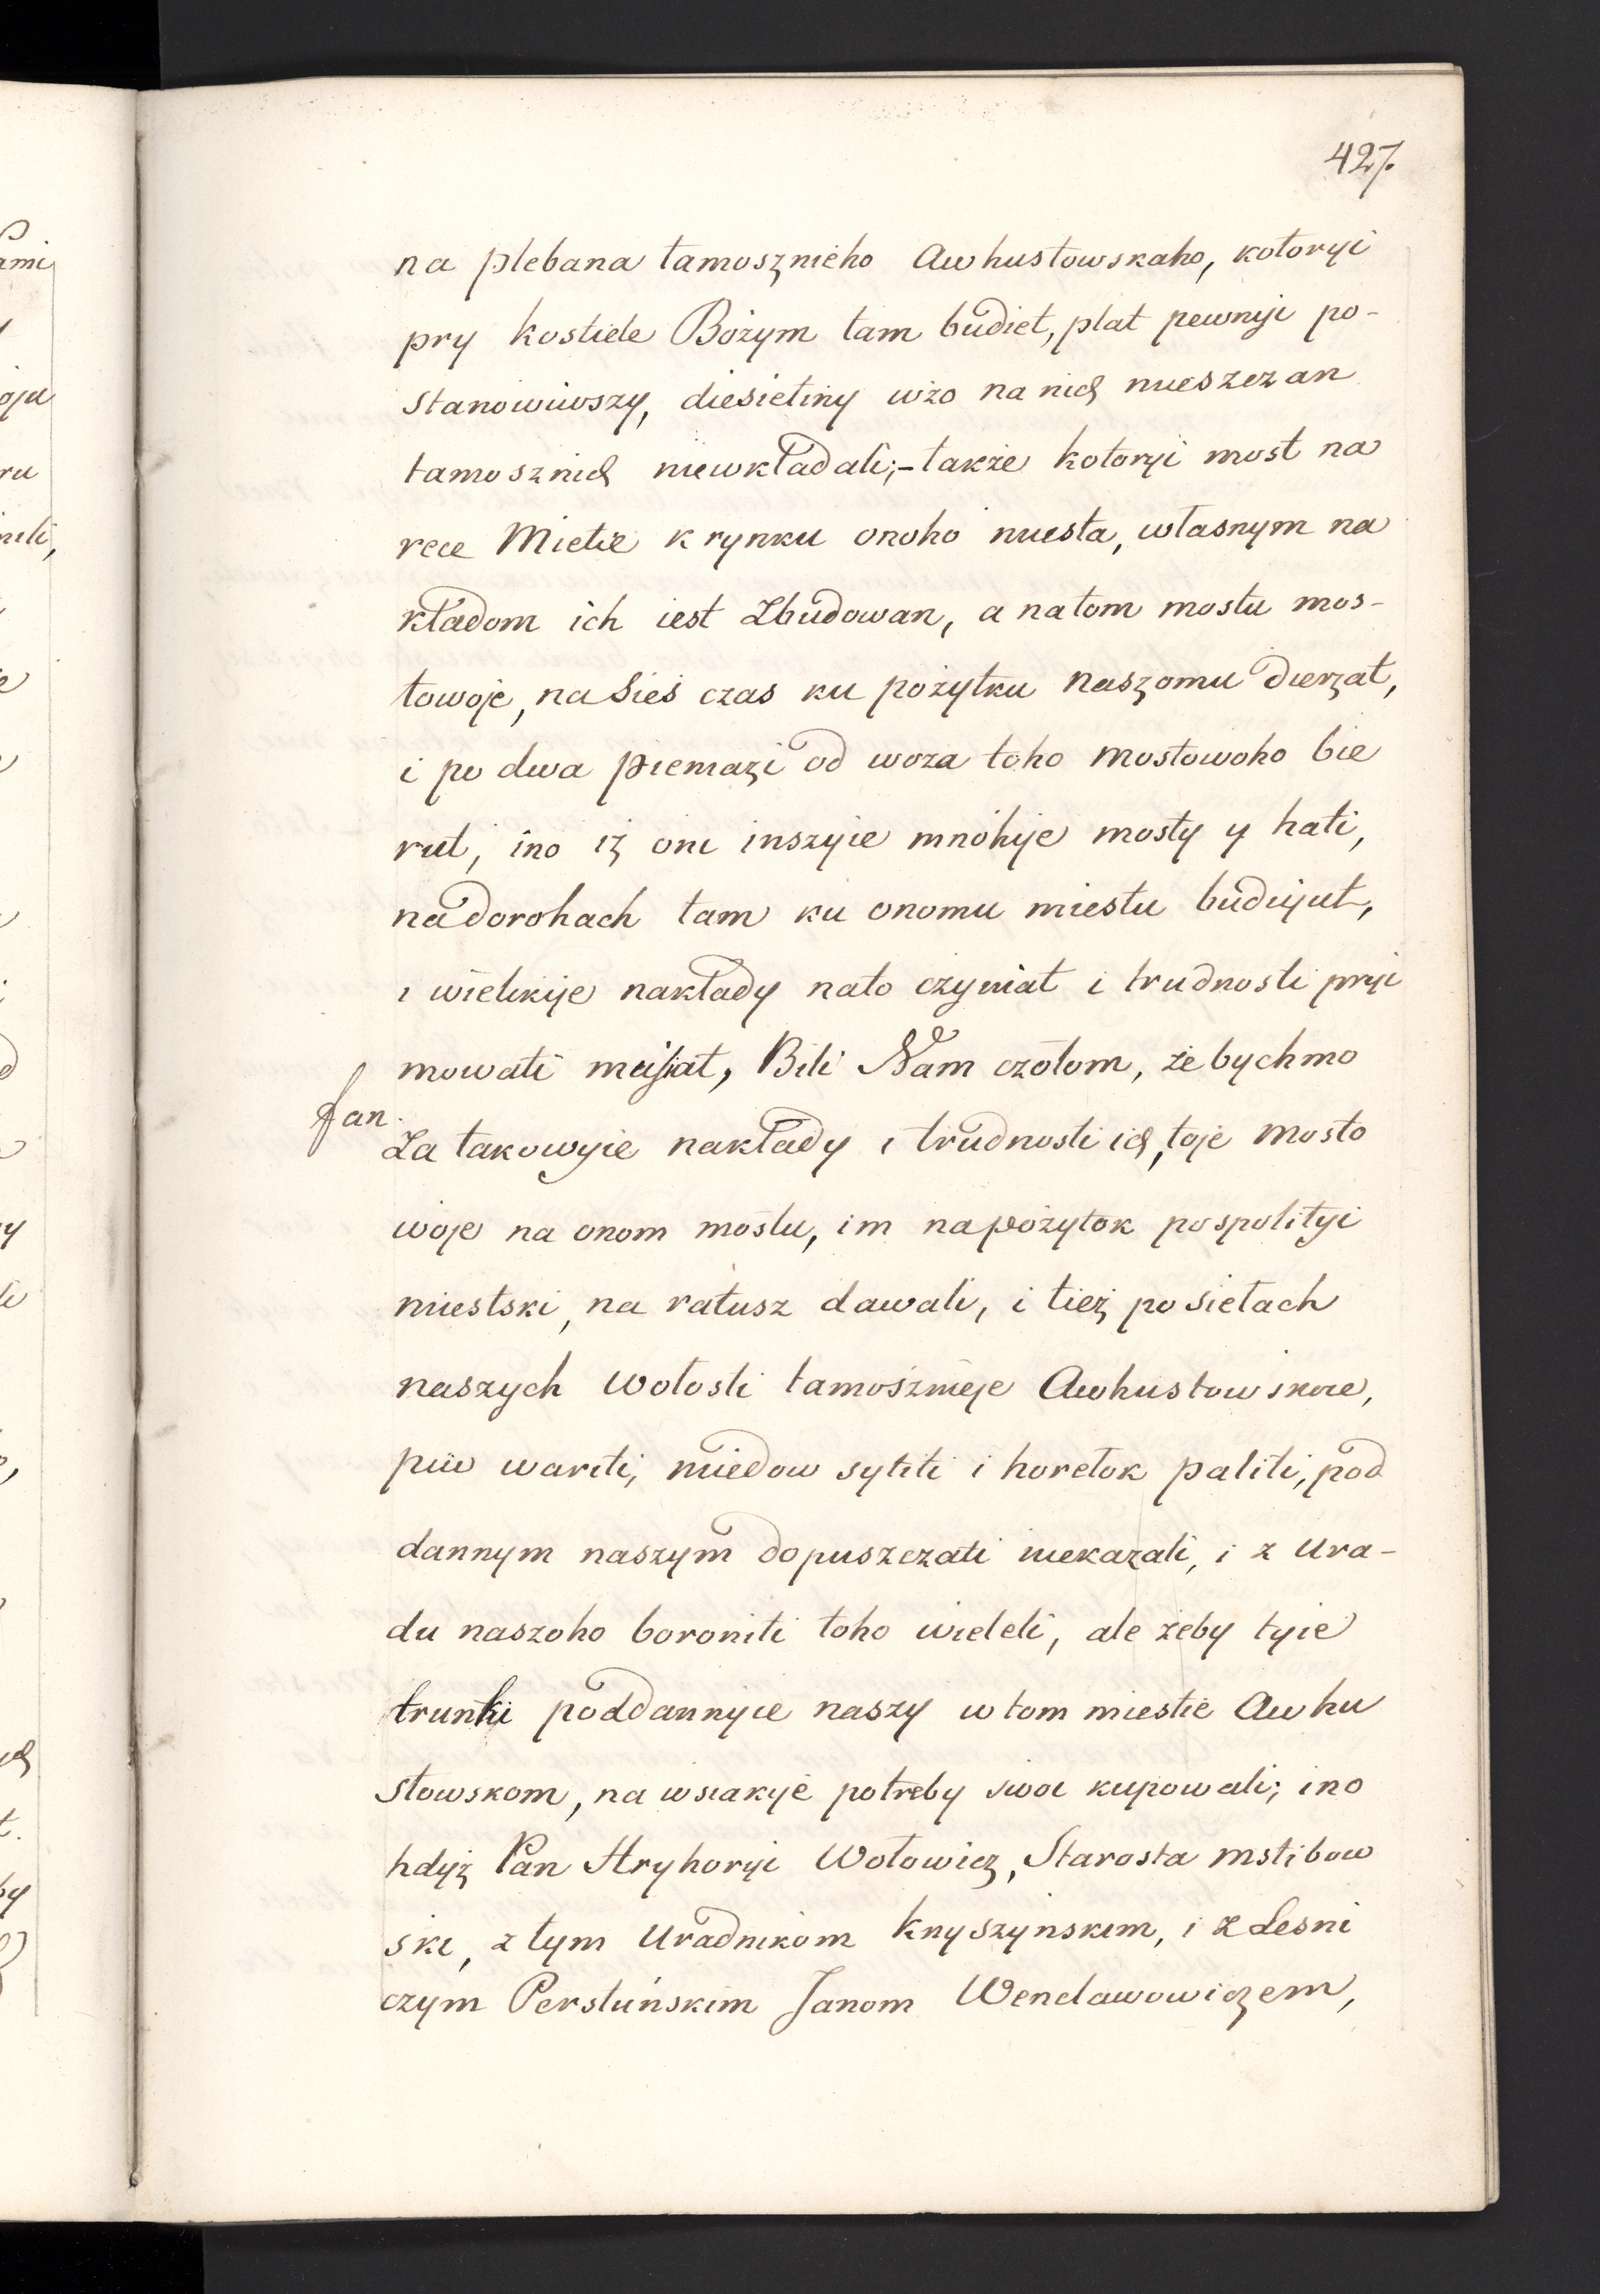 427.
na plebana tamosznieho Awhustowskaho, kotoryi
pry kostiele Bożym tam budiet, płat pewnyi po-
stanowiwszy, diesietiny wżo na nich mieszczan
tamosznich niewkładali;- także kotoryi most na
rece Mietie k rynku onoho miesta, własnym na
kładom ich iest Zbudowan, a natom mostu mos-
towoje, na Sieś czas ku pożytku naszomu dierżat,
i po dwa pieniazi od woza toho mostowoho bie
rut, ino iż oni inszyie mnohije mosty y hati,
na dorohach tam ku onomu miestu budujut,
i wielikije nakłady nato czyniat i trudnosti pryi
mowati musiat, Bili Nam czołom, że bychmo
Za takowyie nakłady i trudnosti ich, toje mosto
woje na onom mostu, im napożytok pospolityi
miestski, na ratusz dawali, i tież po siełach
naszych Wołosti tamoszneje Awhustowskoe,
piw wariti, miedow sytiti i horełok paliti, pod
dannym naszym dopuszczati niekazali, i z Ura-
du naszoho boroniti toho wieleli, ale żeby tyie
trunki poddannyie naszy w tom miestie Awhu
stowskom, na wsiakije potreby swoi kupowali; ino
hdyż Pan Hryhoryi Wołowicz, Starosta mstibow
ski, z tym Uradnikom Knyszynskim, i z Lesni
czym Perstuńskim Janom Wenclawowiczem,